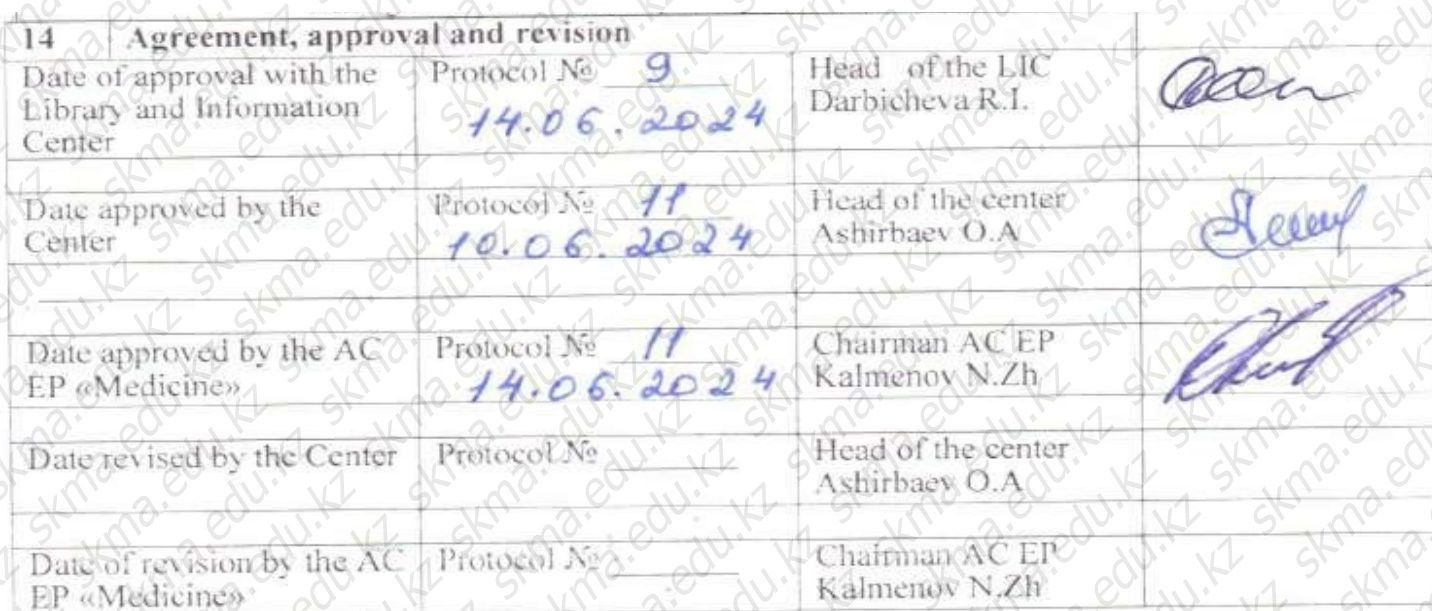 14 Agreement, approval and revision
Date of approval with the Library and Information Center
Protocol № 9
14.06.2024
Head of the LIC
Darbicheva R.I.
Date approved by the Center
Protocol № 11
10.06.2024
Head of the center
Ashirbaev O.A
Date approved by the AC EP «Medicine»
Protocol № 11
14.06.2024
Chairman AC EP
Kalmenov N.Zh
Date revised by the Center
Protocol №
Head of the center
Ashirbaev O.A
Date of revision by the AC EP «Medicine»
Protocol №
Chairman AC EP
Kalmenov N.Zh
skma.edu.kz